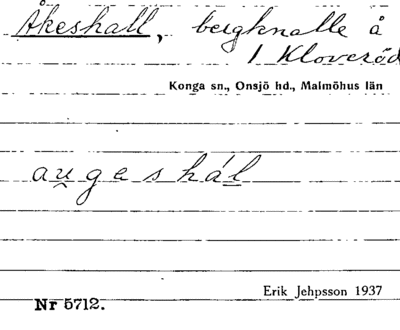 Åkeshall, bergknalle å
1 Kloveröd
Konga sn., Onsjö hd., Malmöhus län
au̯geshál
Erik Jehpsson 1937
Nr 5712.